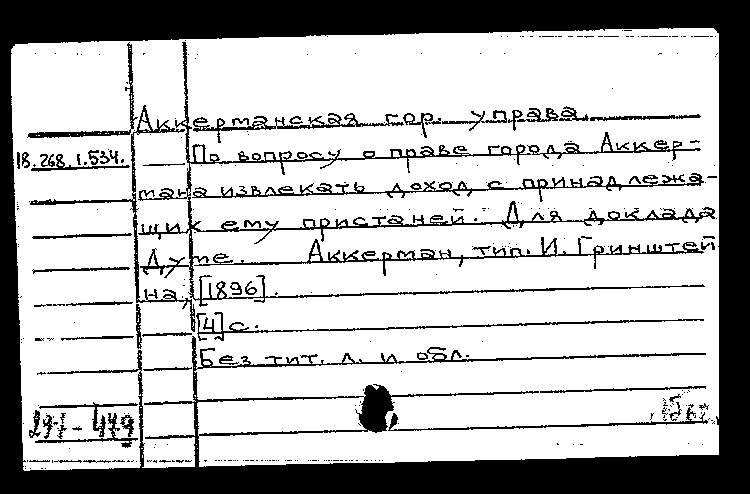 Аккерманская гор. управа.
18.268.1.534. По вопросу о праве города Аккер-
мана извлекать доход с принадлежа-
щих ему пристаней. Для доклада
Думе. Аккерман, тип. И. Гринштей
на, [1896].
[4] с.
Без тит. л. и обл.
479